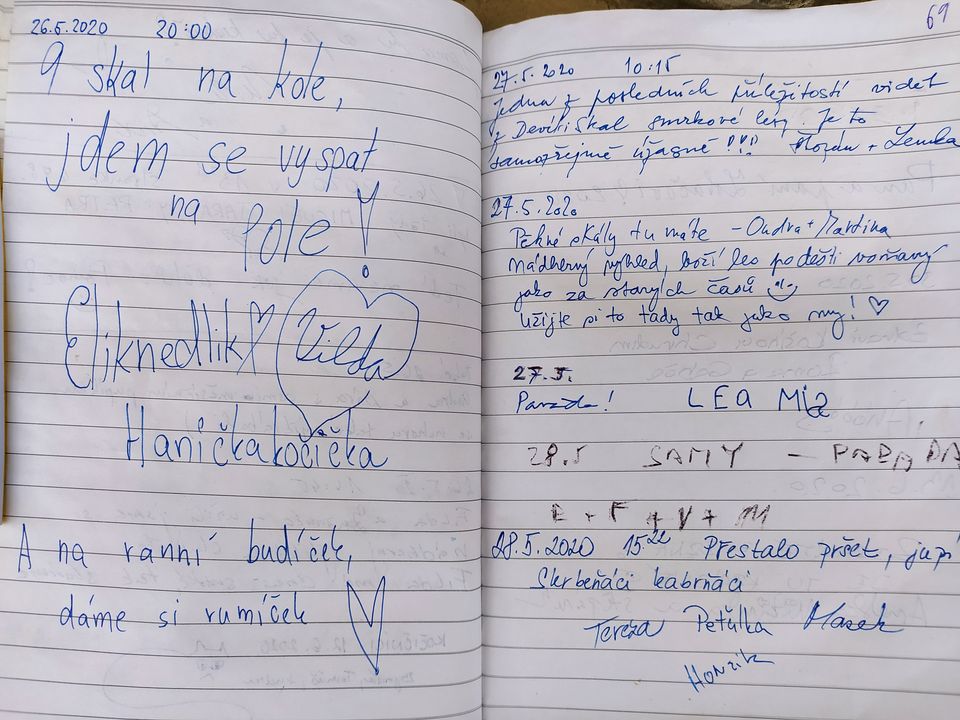 26.5.2020 20:00
9 skal na kole,
jdem se vyspat
na Pole!
Eliknedlik Vilda
Haničkakočička
A na ranní budíček,
dáme si rumíček
69
27.5.2020 10:15
Jedna z posledních příležitostí vidět
z Devíti Skal smrkové lesy. Je to
samozřejmě úžasné !!! + Lenka
27.5.2020
Pěkné skály tu máte - Ondra + Martina
Nádherný výhled, boží les po dešti voňavý
jako za starých časů
Užijte si to tady tak jako my! ♡
27.5.
Paráda! LEA Mia
28.5 SAMY - PARÁDA
E + F + V + M
28.5.2020 15:22 Přestalo pršet, jupí
Skrbeňáci kabrňáci
Tereza Peťulka Marek
Honzík